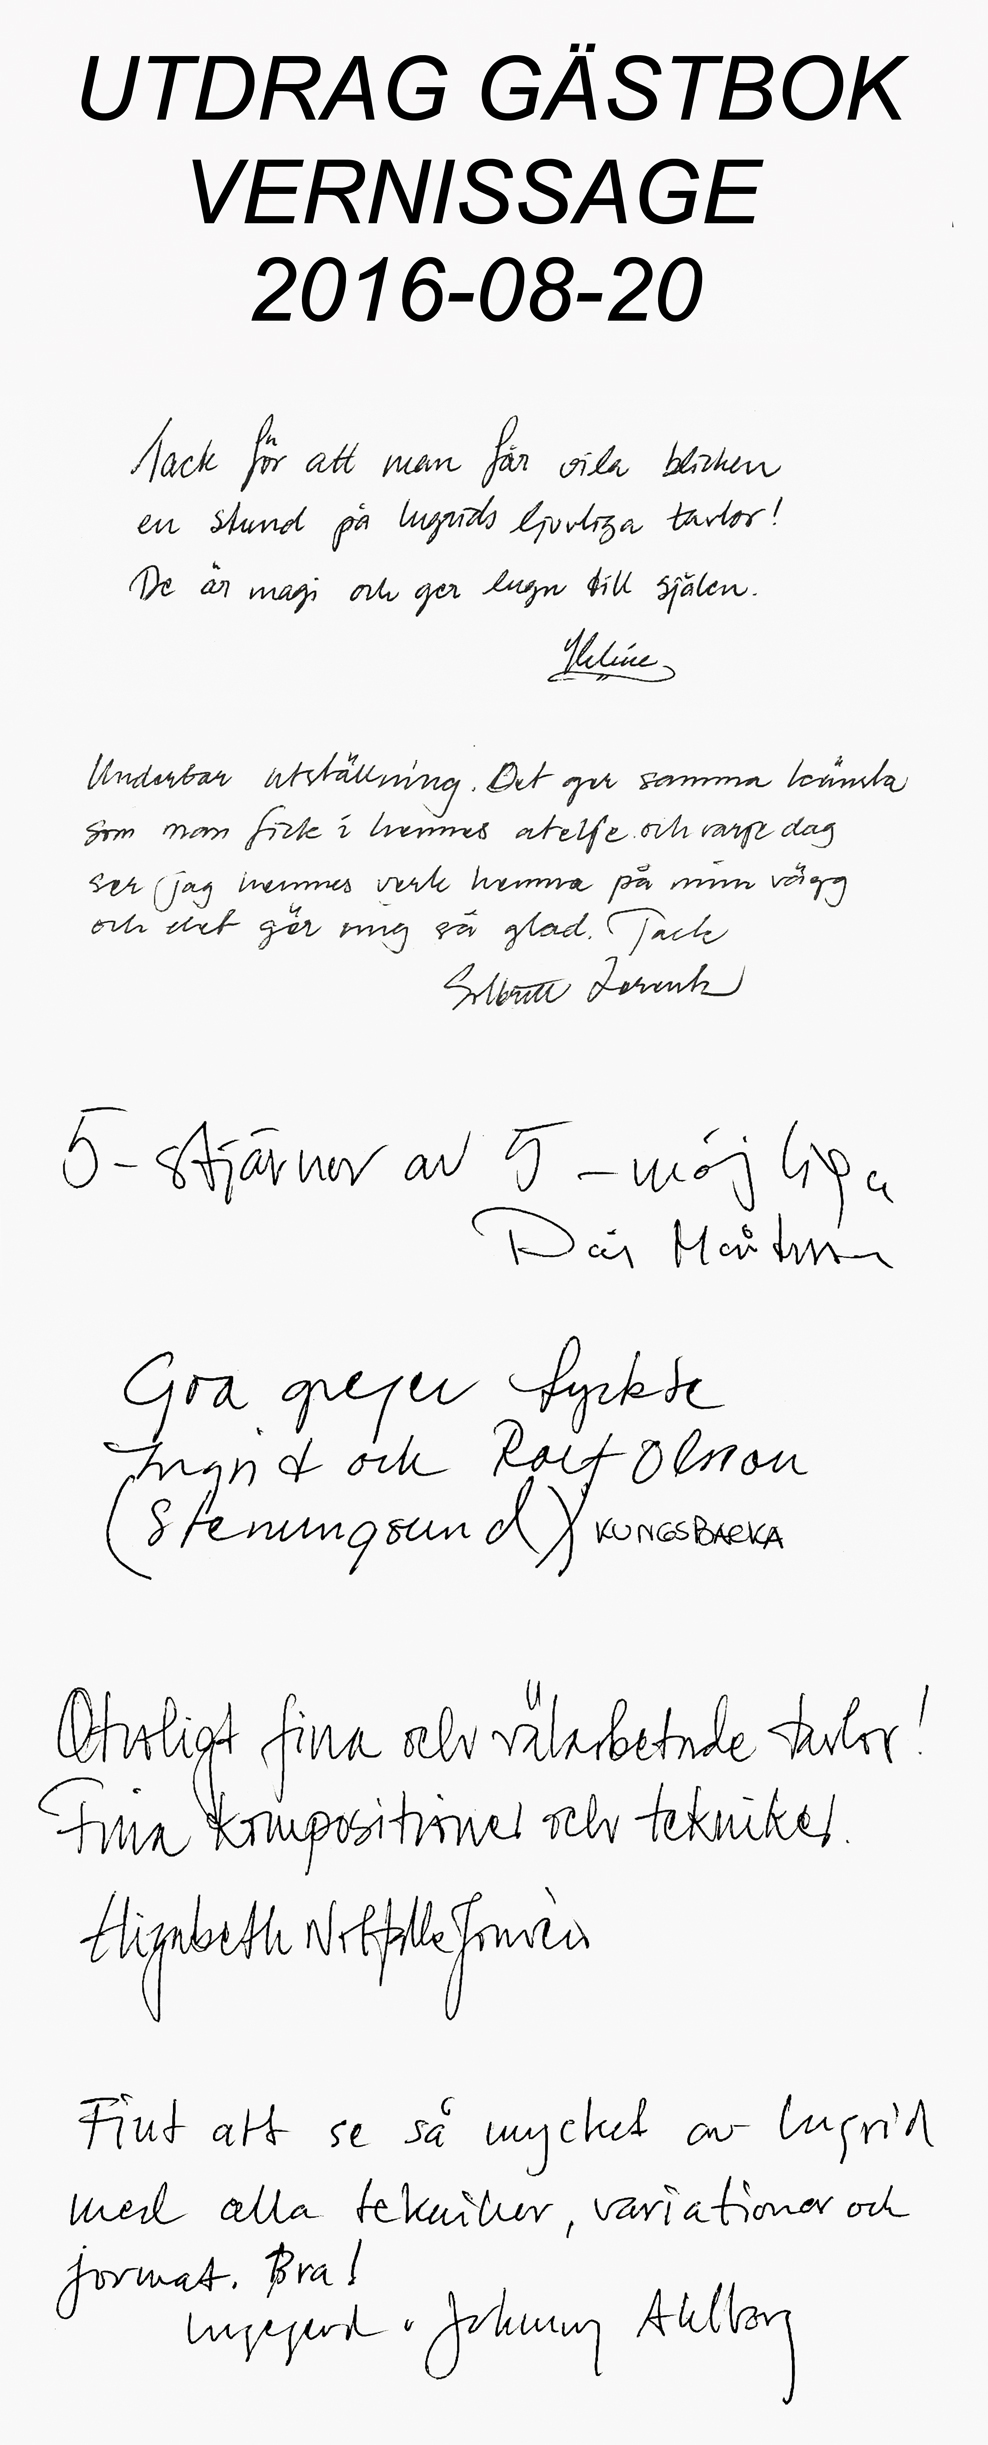 UTDRAG GÄSTBOK
VERNISSAGE
2016-08-20
Tack för att man får vila blicken
en stund på Ingrids ljuvliga tavlor!
De är magi och ger lugn till själen.
Heléne
Underbar utställning. Det ger samma känsla
som man fick i hennes atelje och varje dag
ser jag hennes verk hemma på min vägg
och det gör mig så glad. Tack
Solbritt
5-stjärnor av 5-möjliga
Mårtensson
Goa grejer tyckte
Ingrid och Rolf Olsson
(Stenungsund) KUNGSBACKA
Otroligt fina och välarbetade tavlor!
Fina kompositioner och tekniker.
Elizabeth
Fint att se så mycket av Ingrid
med alla tekniker, variationer och
format. Bra!
Ingegerd o Johnny Ahlborg